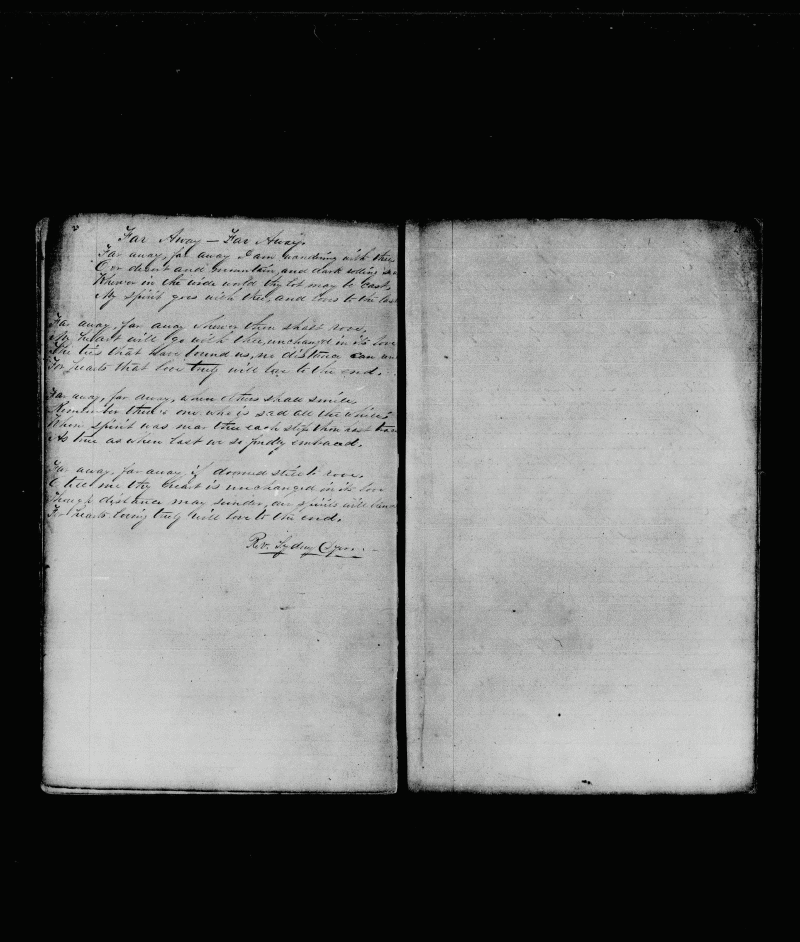 Far Away — Far Away.
Far away, far away I am wandering with thee
O'er desert and mountain, and dark rolling
Wherever in the wide world thy lot may be cast,
My spirit goes with thee, and loves to the last
Far away, far away where'er thou shalt rove,
My heart will go with thee, unchanged in its love
The ties that have bound us, no distance can
For hearts that love truly will love to the end.
Far away, far away, when others shall smile,
Remember there's one who is sad all the while
Whose spirit was near thee each step thou
As true as when last we so fondly embraced.
Far away, far away, if doomed still to rove
O tell me thy heart is unchanged in its love
Though distance may sunder, our spirits will
For hearts loving truly will love to the end.
Rev. Sydney